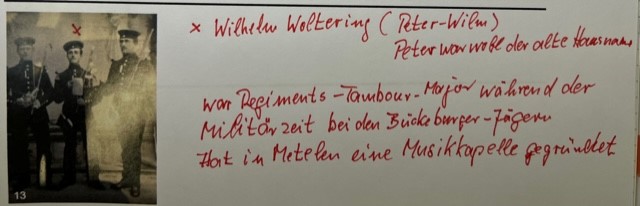 x Wilhelm Woltering (Peter-Wilm)
Peter war wohl der alte Hausname
war Regiments-Tambour-Major während der
Militärzeit bei den Bückeburger-Jägern
Hat in Metelen eine Musikkapelle gegründet
x
13